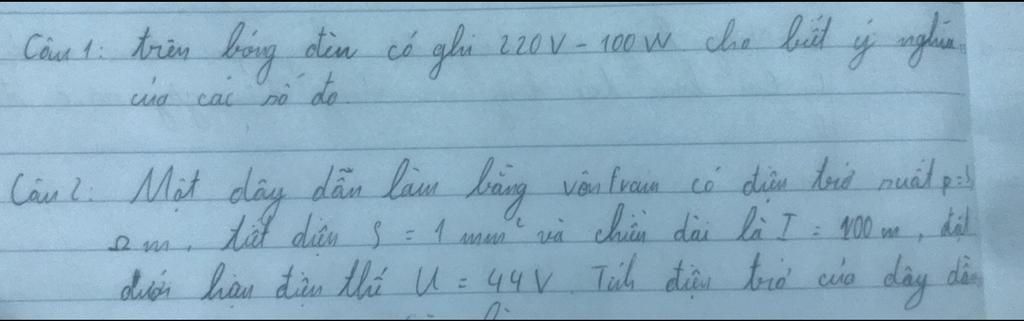 Câu 1: trên bóng đèn có ghi 220V - 100W cho biết ý nghĩa
của các số đo.
Câu 2: Một dây dẫn làm bằng vônfram có điện trở suất ρ =
Ωm, tiết diện S = 1 mm² và chiều dài là I = 100 m, đặt
dưới hiệu điện thế U = 44V. Tính điện trở của dây dẫn